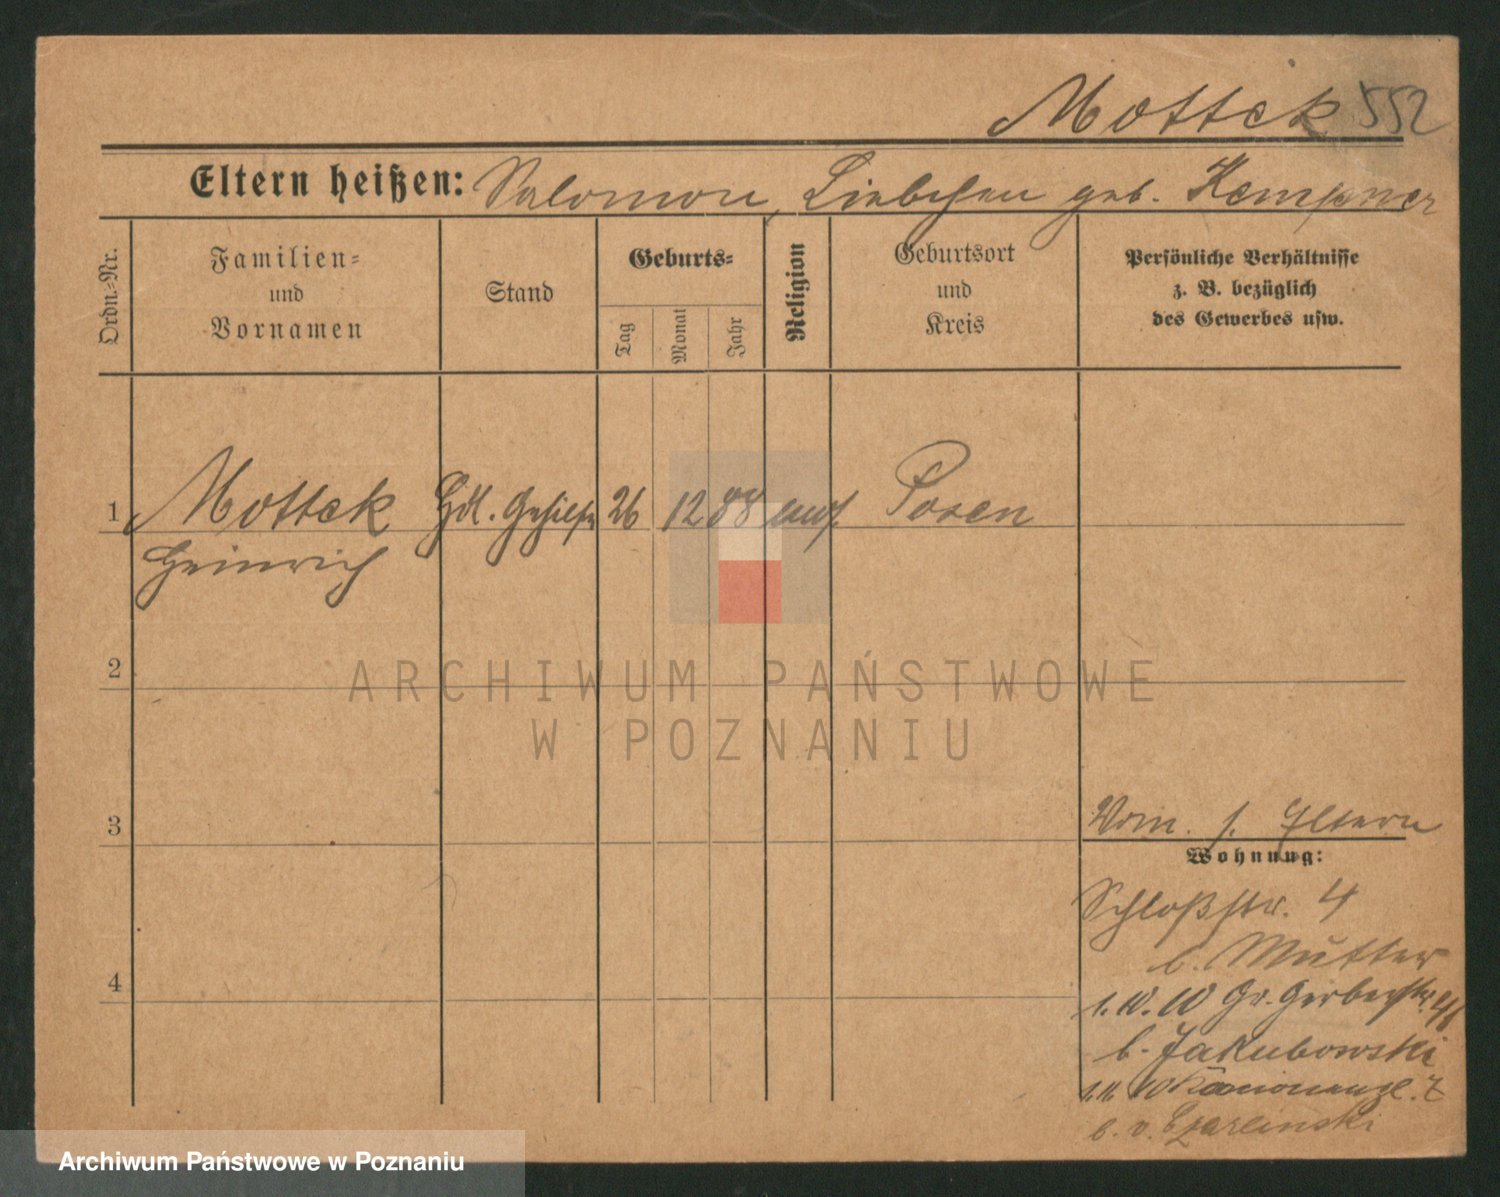 Mottek 552
Eltern heißen: Salomon, Liebchen geb. Kempner
Ordn.=Nr.
Familien=
und
Vornamen
Stand
Geburts=
Tag
Monat
Jahr
Religion
Geburtsort
und
Kreis
Persönliche Verhältnisse
z. B. bezüglich
des Gewerbes usw.
1 Mottek Hdl. Gehilfe 26 12 88 mos. Posen
Heinrich
2
3
4
Vom. s. Eltern
Wohnung:
Schloßstr. 4
b. Mutter
1.10.10 Gr. Gerberstr.
b. Jakubowski
1.11.10
b. v. Czarlinski
ARCHIWUM PAŃSTWOWE
W POZNANIU
Archiwum Państwowe w Poznaniu